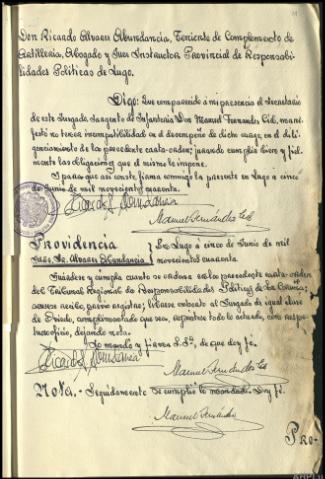 Don Ricardo Alvarez Abundancia, Teniente de Complemento de
Artilleria, Abogado y Juez Instructor Provincial de Responsabi-
lidades Politicas de Lugo.
Digo: Que comparecido á mi presencia el Secretario
de este Juzgado, Sargento de Infanteria Don Manuel Fernandez Cid, mani-
festó no tener incompatibilidad en el desempeño de dicho cargo en el dili-
genciamiento de la precedente carta-orden; jurando cumplir bien y fiel-
mente las obligaciones que el mismo le impone.
I para que asi conste, firma conmigo la presente en Lugo a cinco
de Junio de mil novecientos cuarenta.
Ricardo Abundancia
Manuel Fernández Cid
Providencia
Juez, Sr. Alvarez Abundancia
En Lugo a cinco de Junio de mil
novecientos cuarenta.
Guárdese y cumpla cuanto se ordena en la precedente carta-orden
del Tribunal Regional de Responsabilidades Politicas de La Coruña;
acúsese recibo, previo registro; librese exhorto al Juzgado de igual clase
de Oviedo, cumplimentado que sea, repórtese todo lo actuado, con respe-
tuoso oficio, dejando nota.
Lo mando y firma S. Sª. de que doy fe.
Ricardo Abundancia
Manuel Fernández Cid
Nota.- Seguidamente se cumplió lo mandado. Doy fe.
Manuel Fernández
Pro-